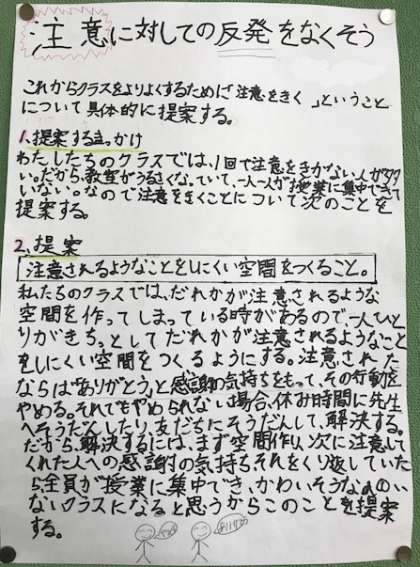 注意に対しての反発をなくそう
これからクラスをよりよくするために「注意をきく」ということ
について具体的に提案する。
1、提案するきっかけ
わたしたちのクラスでは、1回で注意をきかない人が多
い。だから、教室がうるさくなっていて、一人一人が授業に集中できて
いない。なので注意をきくことについて次のことを
提案する。
2、提案
注意されるようなことをしにくい空間をつくること。
私たちのクラスでは、だれかが注意されるような
空間を作ってしまっている時があるので、一人ひと
りがきちっとしてだれかが注意されるようなこと
をしにくい空間をつくるようにする。注意された
ならば「ありがとう」と感謝の気持ちをもって、その行動を
やめる。それでもやめられない場合、休み時間に先生
へそうだんしたり、友だちにそうだんして、解決する。
だから、解決するには、まず空間作り、次に注意して
くれた人への感謝の気持ちそれをくり返していた
ら全員が授業に集中でき、かわいそうな人のい
ないクラスになると思うからこのことを提案
する。